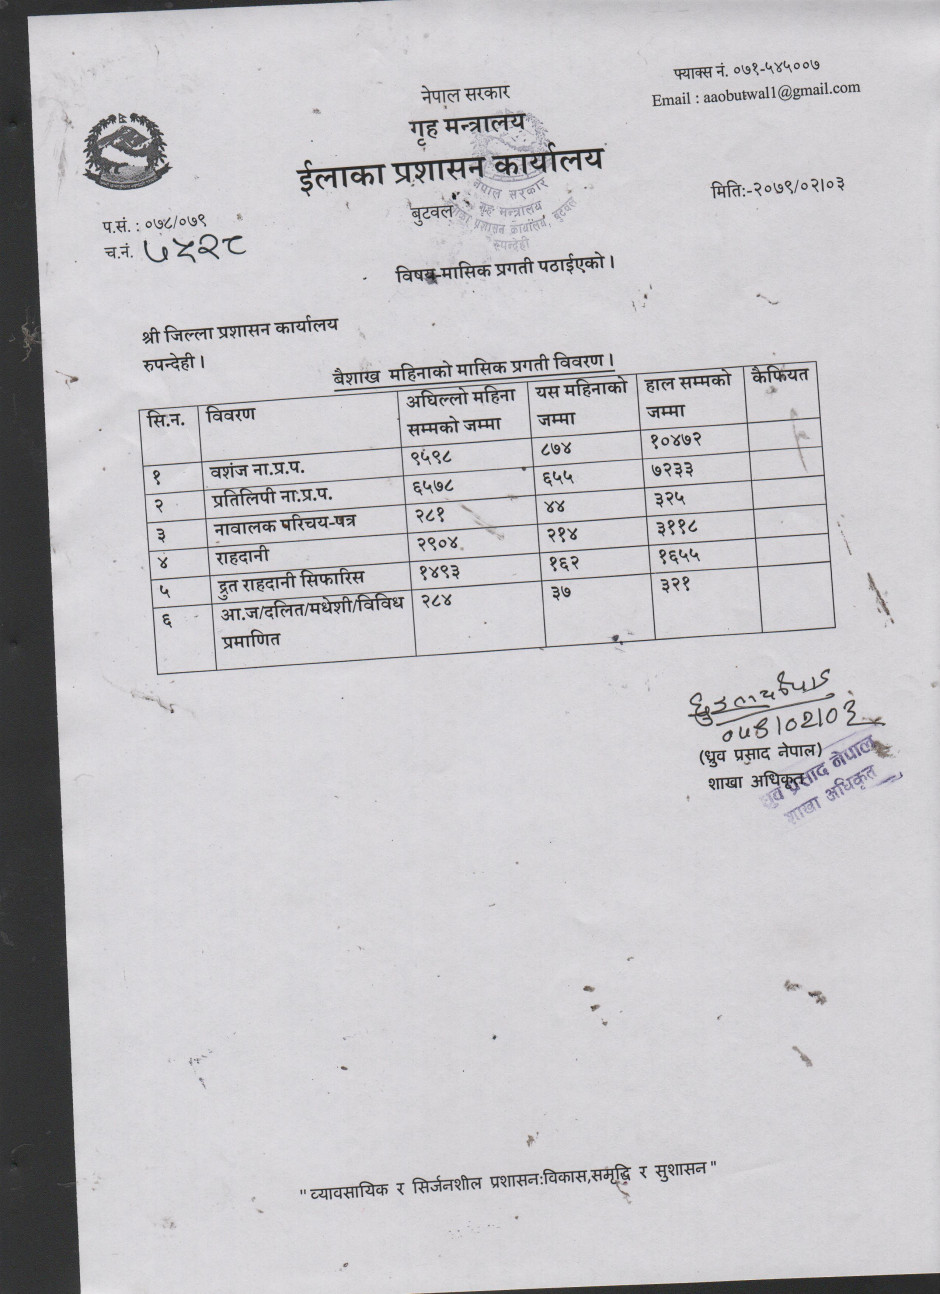 फ्याक्स नं. ०७१-५४५००७
Email : aaobutwal1@gmail.com
नेपाल सरकार
गृह मन्त्रालय
ईलाका प्रशासन कार्यालय
बुटवल
नेपाल सरकार
गृह मन्त्रालय
इलाका प्रशासन कार्यालय, बुटवल
रुपन्देही
मिति:-२०७९/०२/०३
प.सं. : ०७८/०७९
च.नं. ७५२८
विषय-मासिक प्रगती पठाईएको ।
श्री जिल्ला प्रशासन कार्यालय
रुपन्देही ।
बैशाख महिनाको मासिक प्रगती विवरण ।
सि.न. विवरण अघिल्लो महिना सम्मको जम्मा यस महिनाको जम्मा हाल सम्मको जम्मा कैफियत
१ वशंज ना.प्र.प. ९५९८ ८७४ १०४७२
२ प्रतिलिपी ना.प्र.प. ६५७८ ६५५ ७२३३
३ नावालक परिचय-पत्र २८१ ४४ ३२५
४ राहदानी २९०४ २१४ ३११८
५ द्रुत राहदानी सिफारिस १४९३ १६२ १६५५
६ आ.ज/दलित/मधेशी/विविध प्रमाणित २८४ ३७ ३२१
(ध्रुव प्रसाद नेपाल)
शाखा अधिकृत
ध्रुव प्रसाद नेपाल
शाखा अधिकृत
" व्यावसायिक र सिर्जनशील प्रशासन:विकास,समृद्धि र सुशासन "